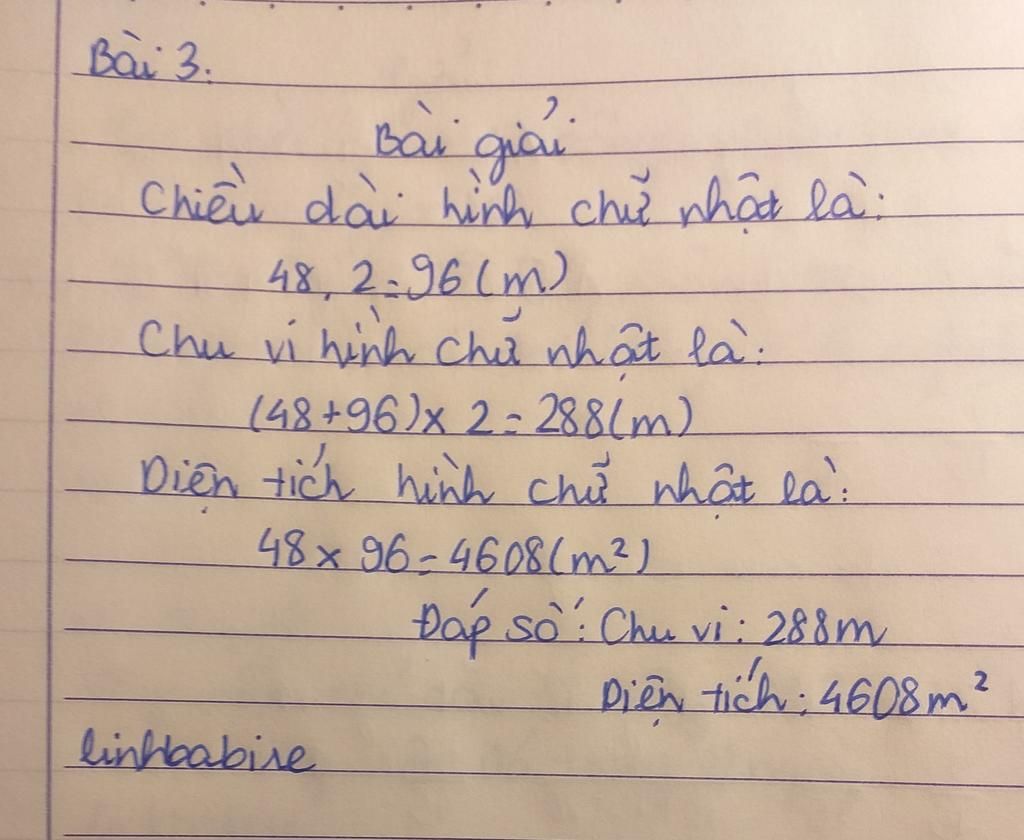 Bài 3.
Bài giải
Chiều dài hình chữ nhật là:
48. 2 = 96 (m)
Chu vi hình chữ nhật là:
(48+96) x 2 = 288 (m)
Diện tích hình chữ nhật là:
48 x 96 = 4608 (m²)
Đáp số: Chu vi: 288m
Diện tích: 4608m²
linhbabise